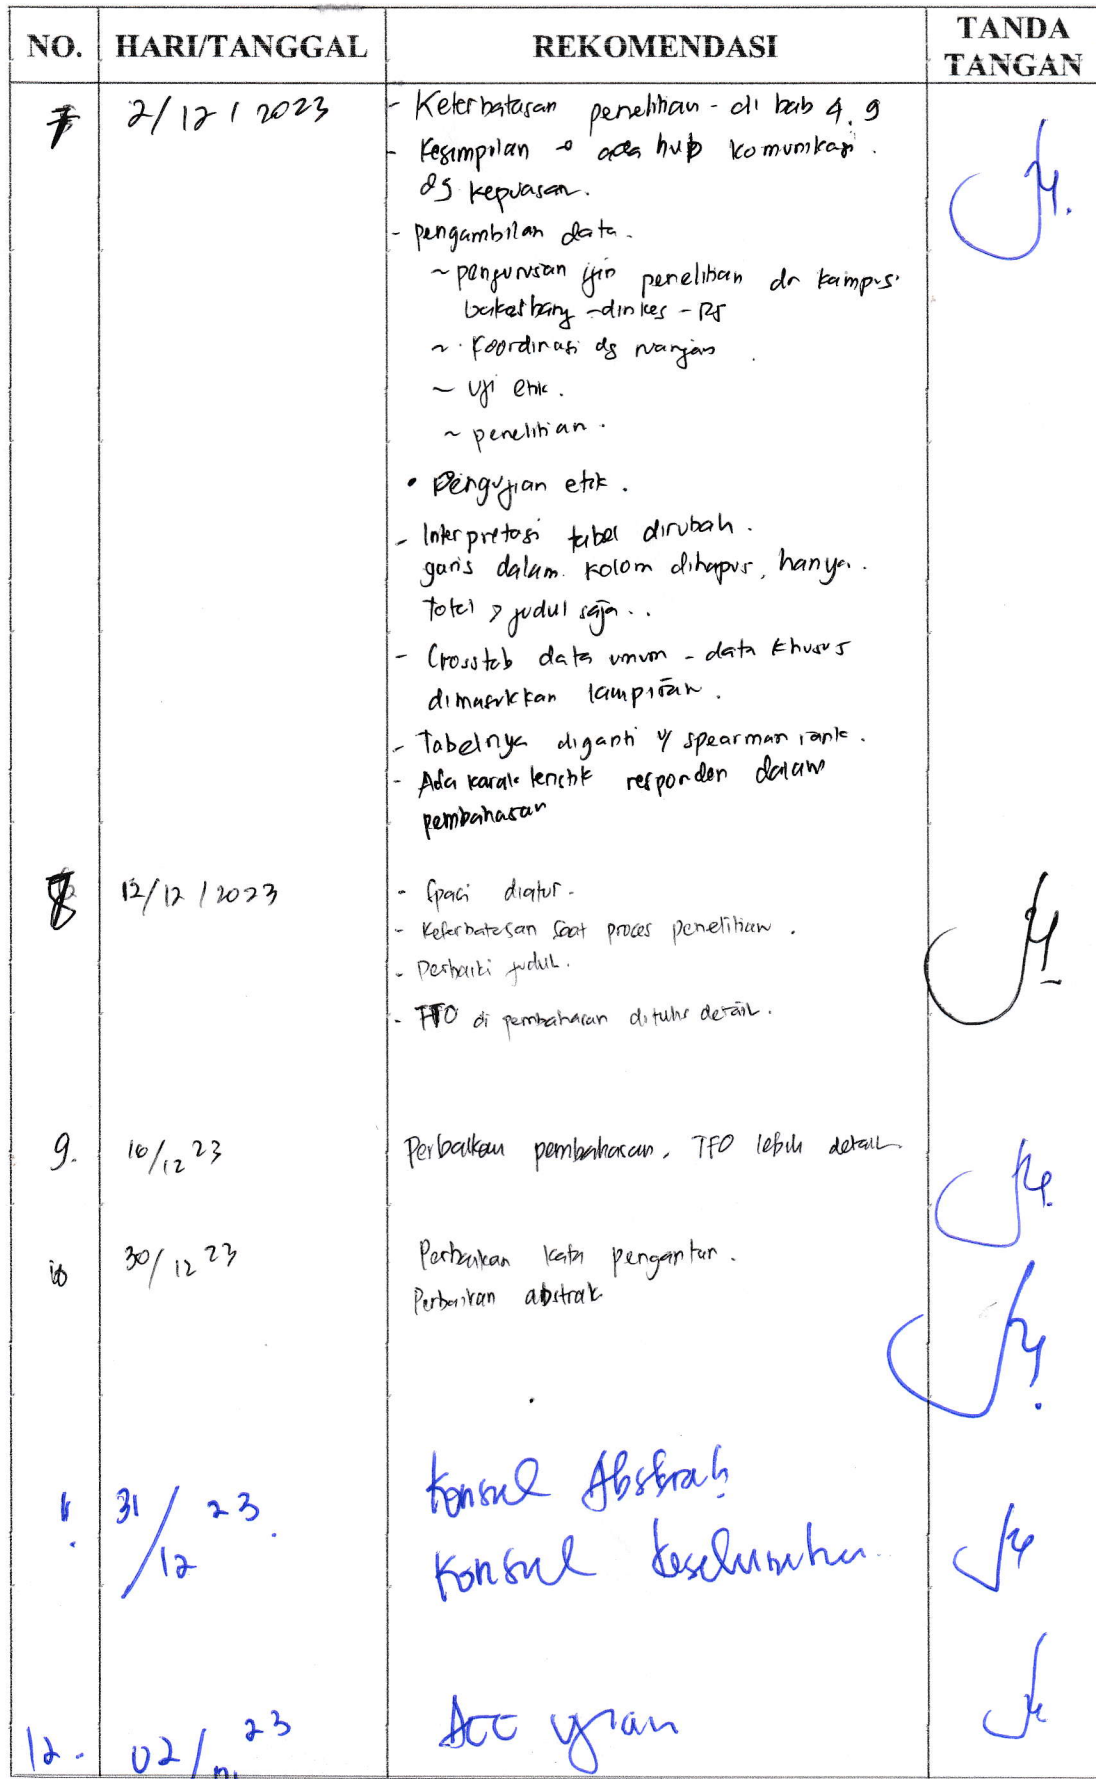 NO. HARI/TANGGAL REKOMENDASI TANDA TANGAN
7 2/12/2023 - Keterbatasan penelitian - di bab 4.9
- Kesimpulan → ada hub komunikasi.
dg kepuasan.
- pengambilan data.
~ pengurusan ijin penelitian dr kampus
bakesbang - dinkes - RS
~ Koordinasi dg
~ uji etik.
~ penelitian.
• Pengujian etik.
- Interpretasi tabel dirubah.
garis dalam kolom dihapus, hanya.
Total > judul saja..
- Crosstab data umum - data khusus
dimasukkan lampiran.
- Tabelnya diganti y spearman rank.
- Ada karakteristik responden dalam
pembahasan
8 12/12/2023 - Spasi diatur.
- Keterbatasan saat proses penelitian.
- Perbaiki judul.
- FTO di pembahasan ditulis detail.
9. 16/12 23 Perbaikan pembahasan, TFO lebih detail
10 30/12 23 Perbaikan kata pengantar.
Perbaikan abstrak
11. 31/12 23. Konsul Abstrak
Konsul keseluruhan
12. 02/ 23 ACC ujian